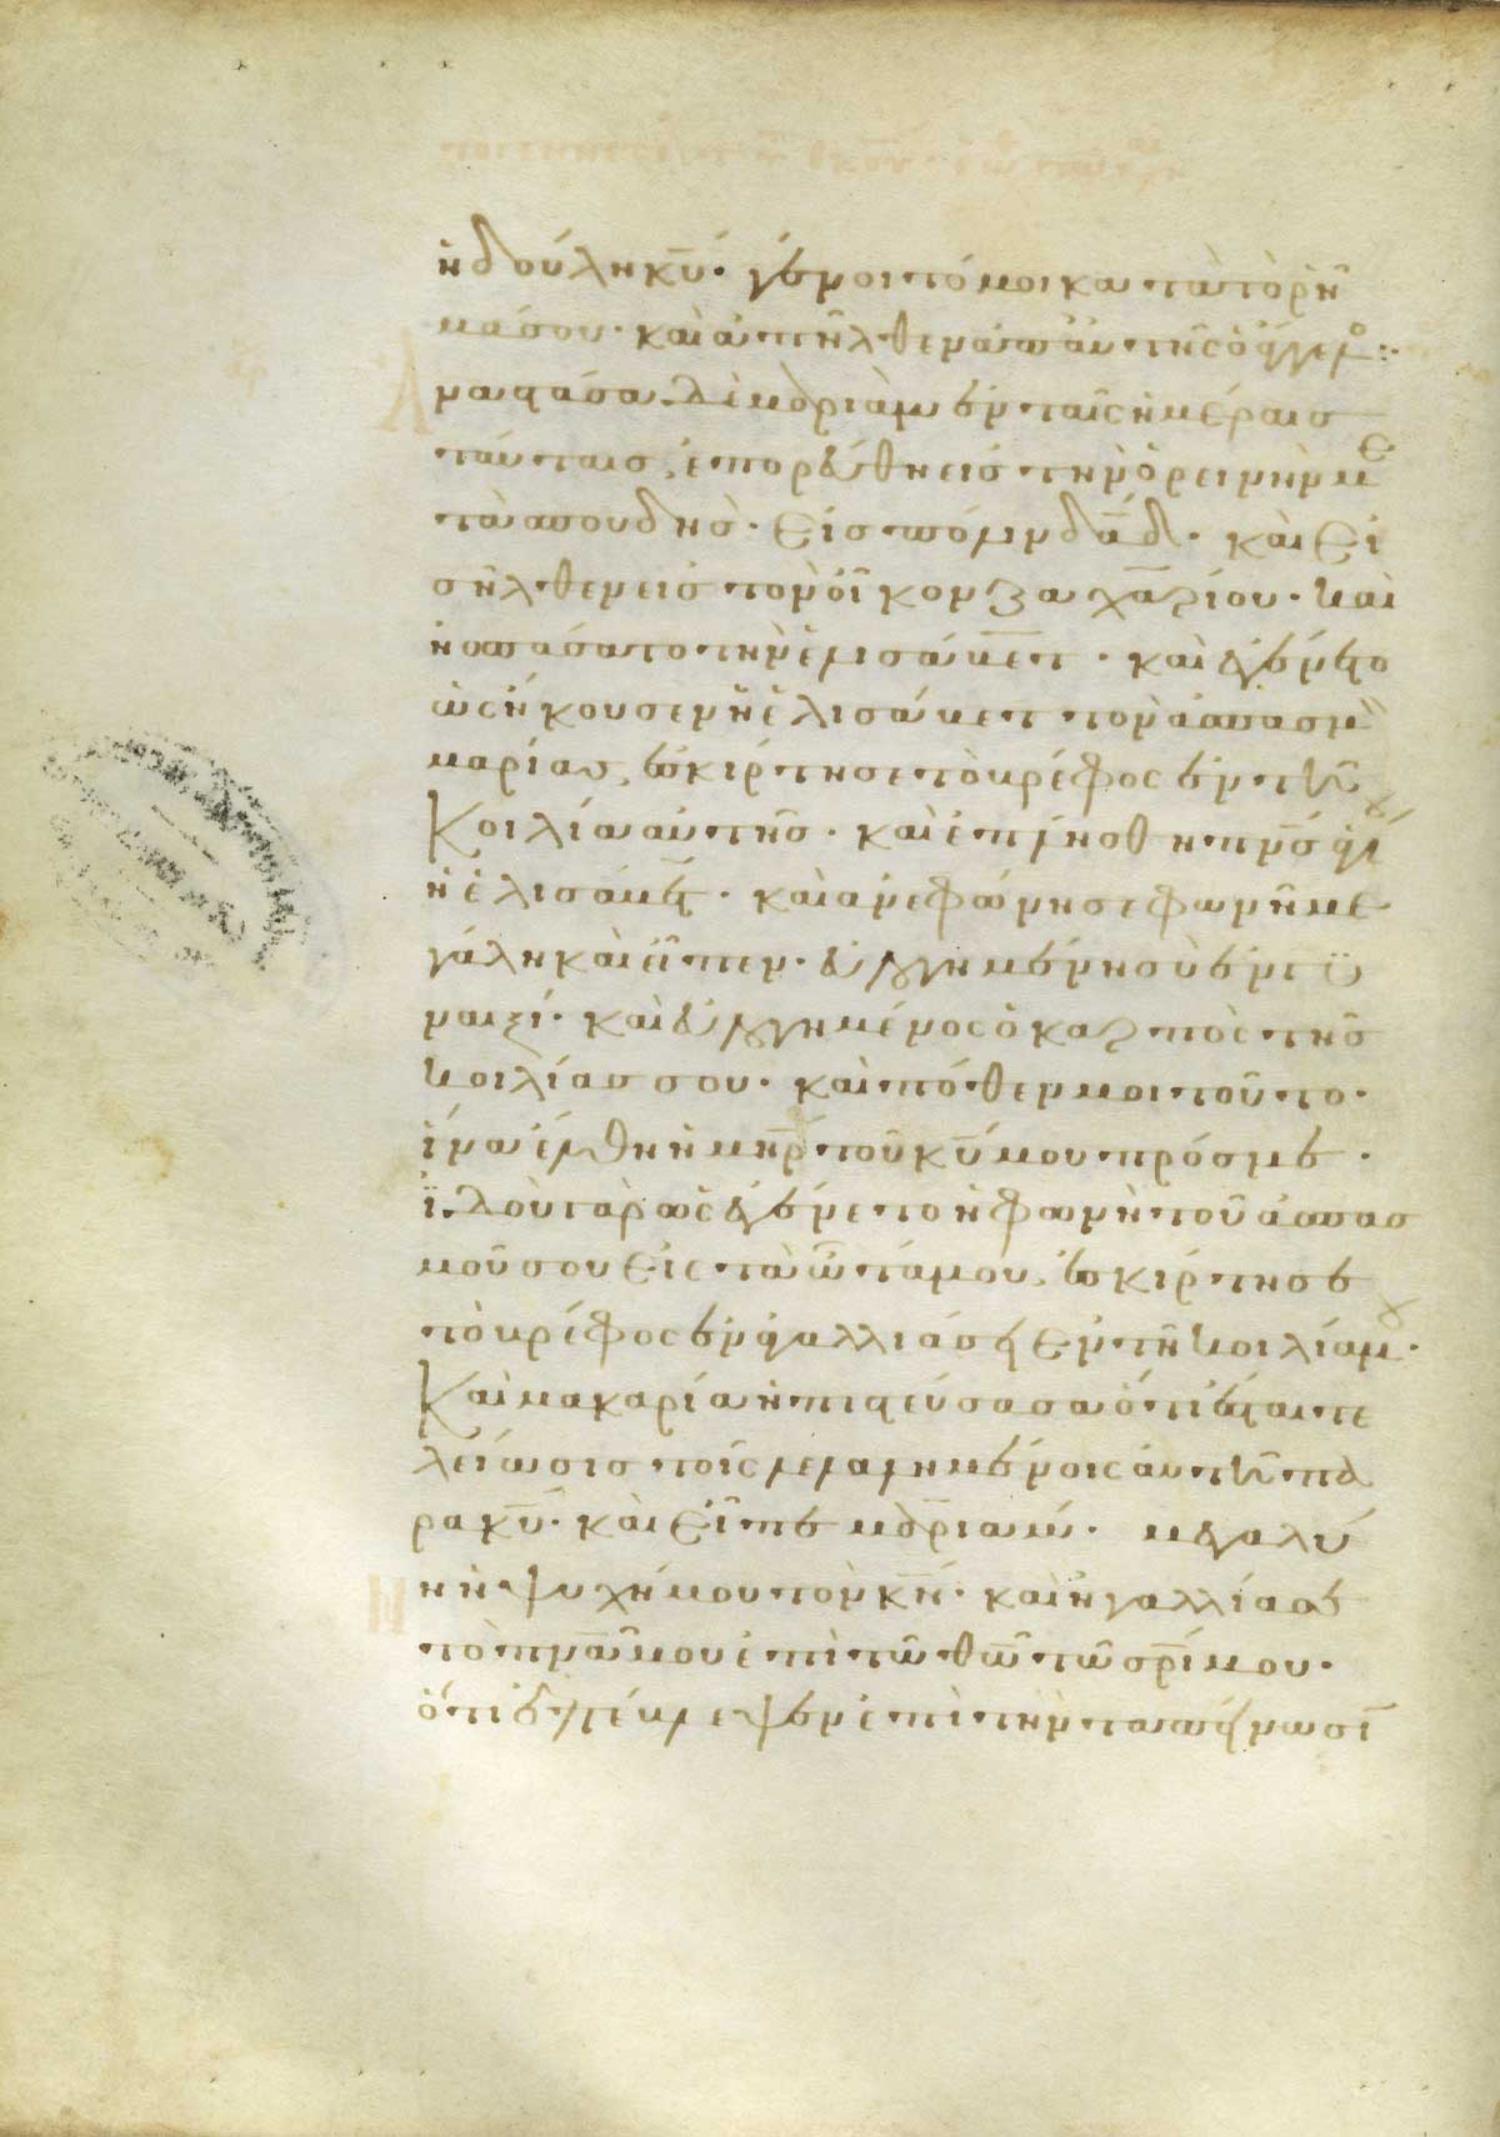 ἡ δούλη κ̅υ̅· γένοιτό μοι κατὰ τὸ ῥῆ
μά σου· καὶ ἀπῆλθεν ἀπ' αὐτῆς ὁ ἄγγελο:·
ναστᾶσα δὲ μαριὰμ ἐν ταῖς ἡμέραις
ταύταις, ἐπορεύθη εἰς τὴν ὀρεινὴν με
τὰ σπουδῆς· εἰς πόλιν δ̅α̅δ̅· καὶ εἰ
σῆλθεν εἰς τὸν οἶκον ζαχαρίου· καὶ
ἠσπάσατο τὴν ἐλισάβετ· καὶ ἐγένετο
ὡς ἤκουσεν ἡ ἐλισάβετ τὸν ἀσπασμὸν
μαρίας, ἐσκίρτησε τὸ βρέφος ἐν τῇ
κοιλίᾳ αὐτῆς· καὶ ἐπλήσθη π̅ν̅ς̅ ἁγίου
ἡ ἐλισάβετ· καὶ ἀνεφώνησε φωνῇ με
γάλῃ καὶ εἶπεν· εὐλογημένη σὺ ἐν γυ
ναιξί· καὶ εὐλογημένος ὁ καρπὸς τῆς
κοιλίας σου· καὶ πόθεν μοι τοῦτο·
ἵνα ἔλθῃ ἡ μ̅η̅ρ̅ τοῦ κ̅υ̅ μου πρός με·
ἰδοὺ γὰρ ὡς ἐγένετο ἡ φωνὴ τοῦ ἀσπασ
μοῦ σου εἰς τὰ ὦτά μου, ἐσκίρτησε
τὸ βρέφος ἐν ἀγαλλιάσει ἐν τῇ κοιλίᾳ μου·
Καὶ μακαρία ἡ πιστεύσασα ὅτι ἔσται τε
λείωσις τοῖς λελαλημένοις αὐτῇ πα
ρὰ κ̅υ̅· καὶ εἶπε μαριάμ· μεγαλύ
νει ἡ ψυχή μου τὸν κ̅ν̅· καὶ ἠγαλλίασε
τὸ π̅ν̅α̅ μου ἐπὶ τῷ θ̅ω̅ τῷ σ̅ρ̅ι̅ μου·
ὅτι ἐπέβλεψεν ἐπὶ τὴν ταπείνωσι̅